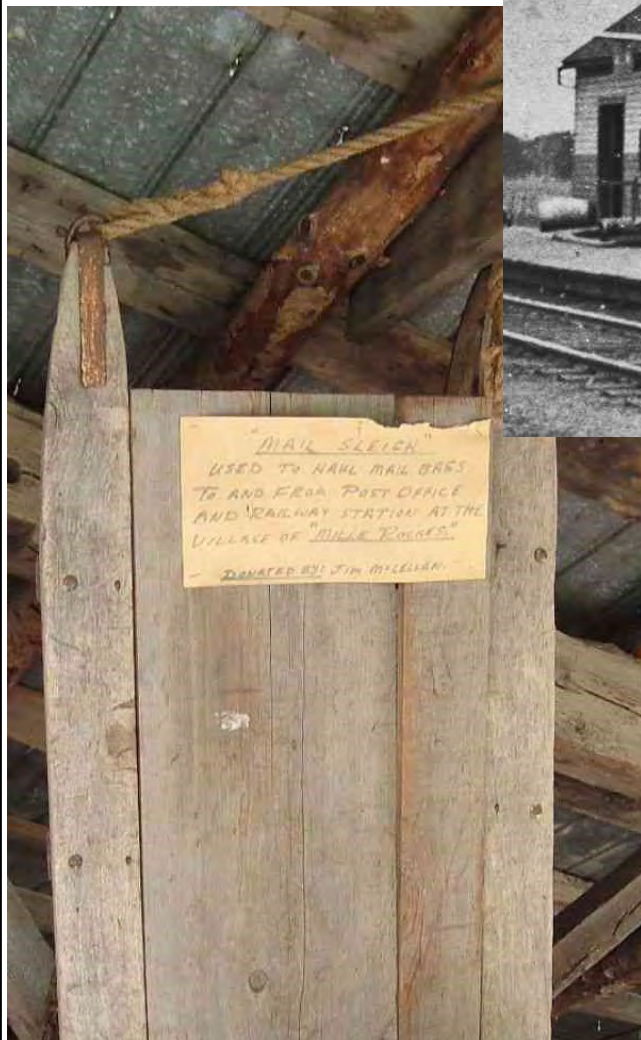 "MAIL SLEIGH"
USED TO HAUL MAIL BAGS
TO AND FROM POST OFFICE
AND RAILWAY STATION AT THE
VILLAGE OF "MILLE ROCHES."
DONATED BY: JIM McLELLAN.